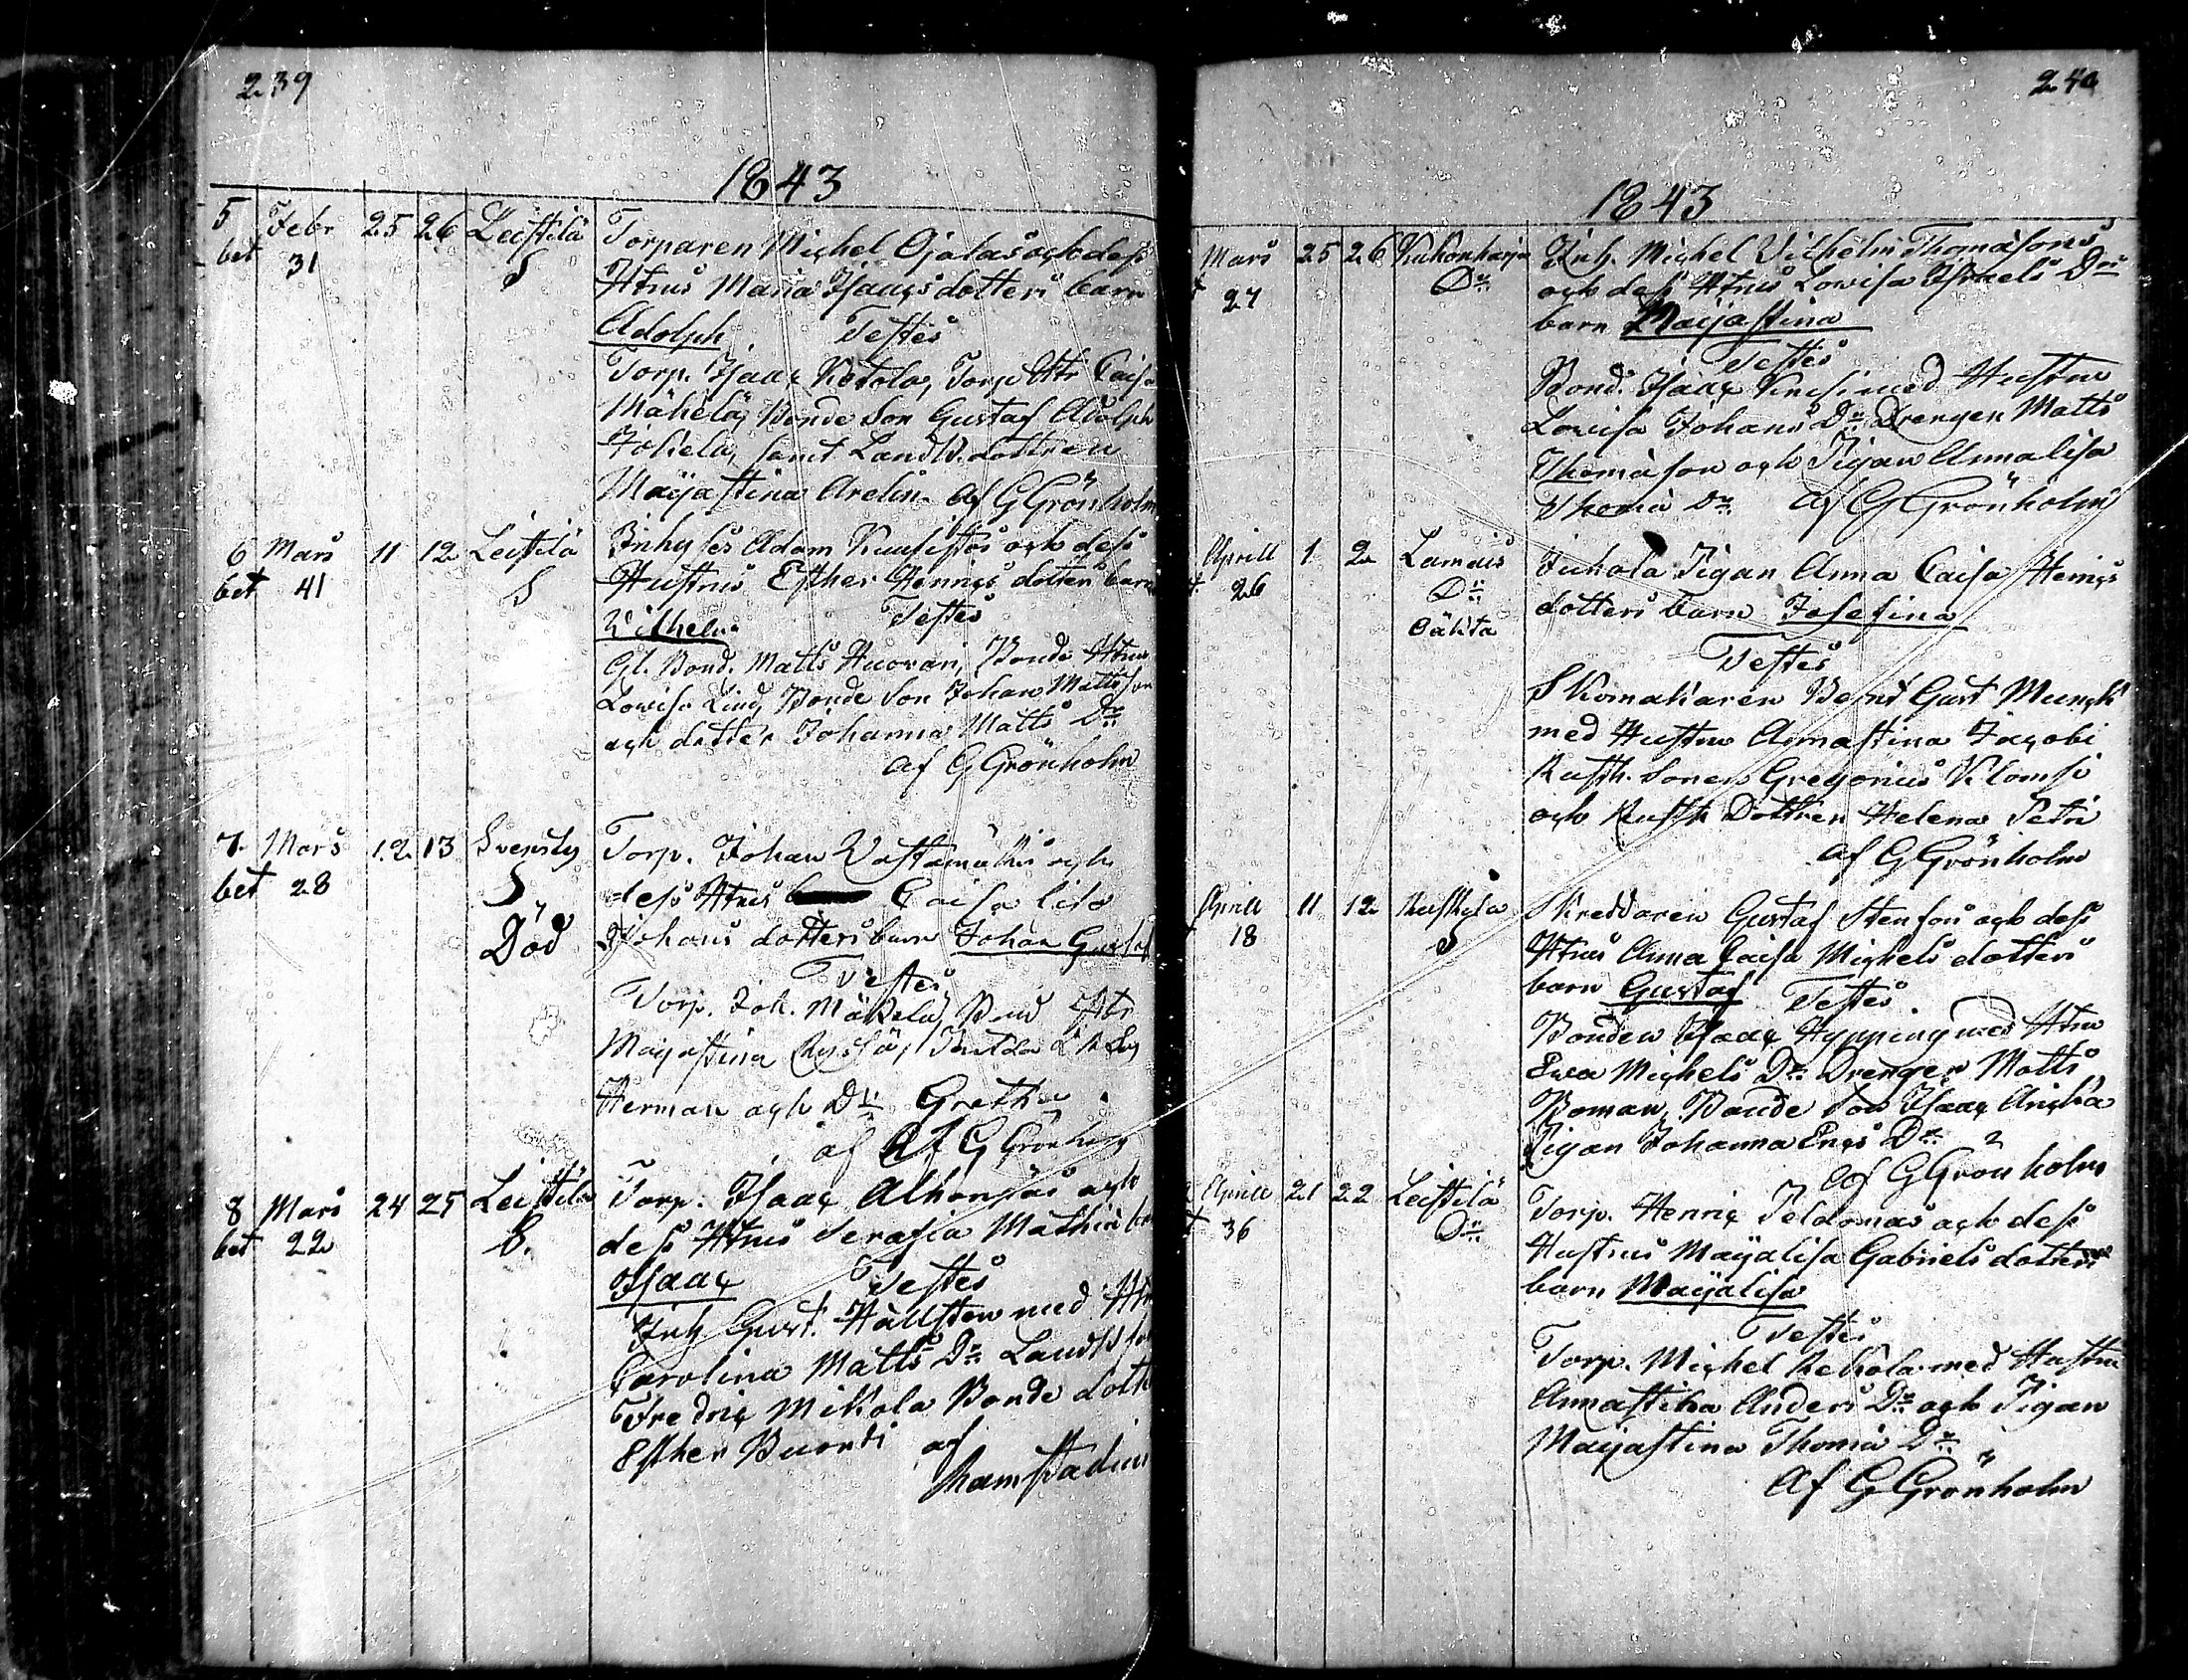 239
1843
5 Febr 25 26 Leistilä Torparen Michel Ojalas och dess
bet 31 S Hstrus Maria Isaacs dotters barn
Adolph Testes
Torp. Isaac Ketola, Torp Hstr Caisa
Mäkelä, Bonde Son Gustaf Adolph
Jokela, samt Landtb. dottren
Maijastina Arelin. af G Grönholm
6 Mars 11 12 Leistilä Inhyses Adam Kuusistos och dess
bet 41 S Hustrus Esther Henrics dotters barn
Wilhelm Testes
Gl. Bond. Matts Huovari, Bonde Hstru
Lovisa Lind, Bonde Son Johan Mattsson
och dotter Johanna Matts Dr
af G Grönholm
7 Mars 12 13 Svensby Torp. Johan Vastamäkis och
bet 28 S dess Hstrus Caisa Lisa
Död Johans dotters barn Johan Gustaf
Testes
Torp. Joh. Mäkelä, Bond Hstr
Maijastina
Herman och Dr Gretha
af G Grönholm
8 Mars 24 25 Leistilä Torp. Isaac Alhonojas och
bet 22 S. dess Hstrus Serafia Mathie
Isaac Testes
Inh Gust. Hällsten med Hstr
Carolina Matts Dr Landtb
Fredric Mikola Bonde dott
Esther Buorti af
Ramstadius
240
1843
Mars 25 26 Kukonharja Inh. Michel Vilhelm Thomasons
t 27 Dr och dess Hstrus Lovisa Israels Drs
barn Maijastina
Testes
Bond. Isaac med Hustru
Lovisa Johans Dr Drengen Matts
Thomason och Pigan Annalisa
Thomæ Dr af G Grönholm
Aprill 1 2 Lamais Juhola Pigan Anna Caisa Henrics
t. 26 Dr dotters barn Josefina
Testes
Skomakaren Bernt Gust Munck
med Hustru Annastina Jacobi
Rusth. Sonen Gregorius Klomsi
och Rusth Dottren Helena Petri
af G Grönholm
Aprill 11 12 Ruskyla Skreddaren Gustaf Stensons och dess
t 18 S Hstrus Anna Caisa Michels dotters
barn Gustaf Testes
Bonden Isaac Hypping med Hstru
Ewa Michels Dr Drengen Matts
Boman, Bonde Son Isaac Ancka
Pigan Johanna Erics Dr
af G Grönholm
Aprill 21 22 Leistilä Torp. Henric Peldomas och dess
t 36 Dr Hustrus Maijalisa Gabriels dotters
barn Maijalisa
Testes
Torp. Michel Rekola med Hustru
Annastina Anders Dr och Pigan
Maijastina Thomæ Dr
af G Grönholm